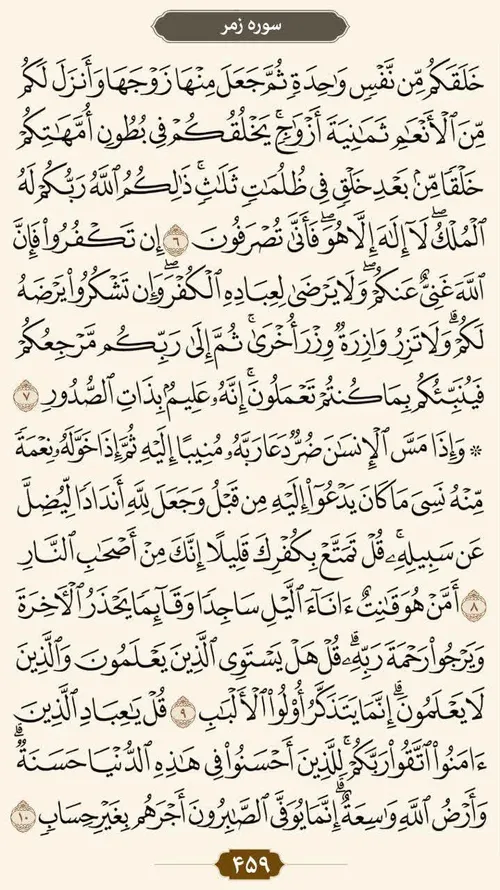 سوره زمر
خَلَقَكُم مِّن نَّفْسٍ وَٰحِدَةٍ ثُمَّ جَعَلَ مِنْهَا زَوْجَهَا وَأَنزَلَ لَكُم
مِّنَ ٱلْأَنْعَٰمِ ثَمَٰنِيَةَ أَزْوَٰجٍ ۚ يَخْلُقُكُمْ فِى بُطُونِ أُمَّهَٰتِكُمْ
خَلْقًا مِّنۢ بَعْدِ خَلْقٍ فِى ظُلُمَٰتٍ ثَلَٰثٍ ۚ ذَٰلِكُمُ ٱللَّهُ رَبُّكُمْ لَهُ
ٱلْمُلْكُ ۖ لَآ إِلَٰهَ إِلَّا هُوَ ۖ فَأَنَّىٰ تُصْرَفُونَ ٦ إِن تَكْفُرُوا۟ فَإِنَّ
ٱللَّهَ غَنِىٌّ عَنكُمْ ۖ وَلَا يَرْضَىٰ لِعِبَادِهِ ٱلْكُفْرَ ۖ وَإِن تَشْكُرُوا۟ يَرْضَهُ
لَكُمْ ۗ وَلَا تَزِرُ وَازِرَةٌ وِزْرَ أُخْرَىٰ ۗ ثُمَّ إِلَىٰ رَبِّكُم مَّرْجِعُكُمْ
فَيُنَبِّئُكُم بِمَا كُنتُمْ تَعْمَلُونَ ۚ إِنَّهُۥ عَلِيمٌۢ بِذَاتِ ٱلصُّدُورِ ٧
* وَإِذَا مَسَّ ٱلْإِنسَٰنَ ضُرٌّ دَعَا رَبَّهُۥ مُنِيبًا إِلَيْهِ ثُمَّ إِذَا خَوَّلَهُۥ نِعْمَةً
مِّنْهُ نَسِىَ مَا كَانَ يَدْعُوٓا۟ إِلَيْهِ مِن قَبْلُ وَجَعَلَ لِلَّهِ أَندَادًا لِّيُضِلَّ
عَن سَبِيلِهِۦ ۚ قُلْ تَمَتَّعْ بِكُفْرِكَ قَلِيلًا إِنَّكَ مِنْ أَصْحَٰبِ ٱلنَّارِ
٨ أَمَّنْ هُوَ قَٰنِتٌ ءَانَآءَ ٱلَّيْلِ سَاجِدًا وَقَآئِمًا يَحْذَرُ ٱلْءَاخِرَةَ
وَيَرْجُوا۟ رَحْمَةَ رَبِّهِۦ ۗ قُلْ هَلْ يَسْتَوِى ٱلَّذِينَ يَعْلَمُونَ وَٱلَّذِينَ
لَا يَعْلَمُونَ ۗ إِنَّمَا يَتَذَكَّرُ أُو۟لُوا۟ ٱلْأَلْبَٰبِ ٩ قُلْ يَٰعِبَادِ ٱلَّذِينَ
ءَامَنُوا۟ ٱتَّقُوا۟ رَبَّكُمْ ۚ لِلَّذِينَ أَحْسَنُوا۟ فِى هَٰذِهِ ٱلدُّنْيَا حَسَنَةٌ ۗ
وَأَرْضُ ٱللَّهِ وَٰسِعَةٌ ۗ إِنَّمَا يُوَفَّى ٱلصَّٰبِرُونَ أَجْرَهُم بِغَيْرِ حِسَابٍ ١٠
۴۵۹